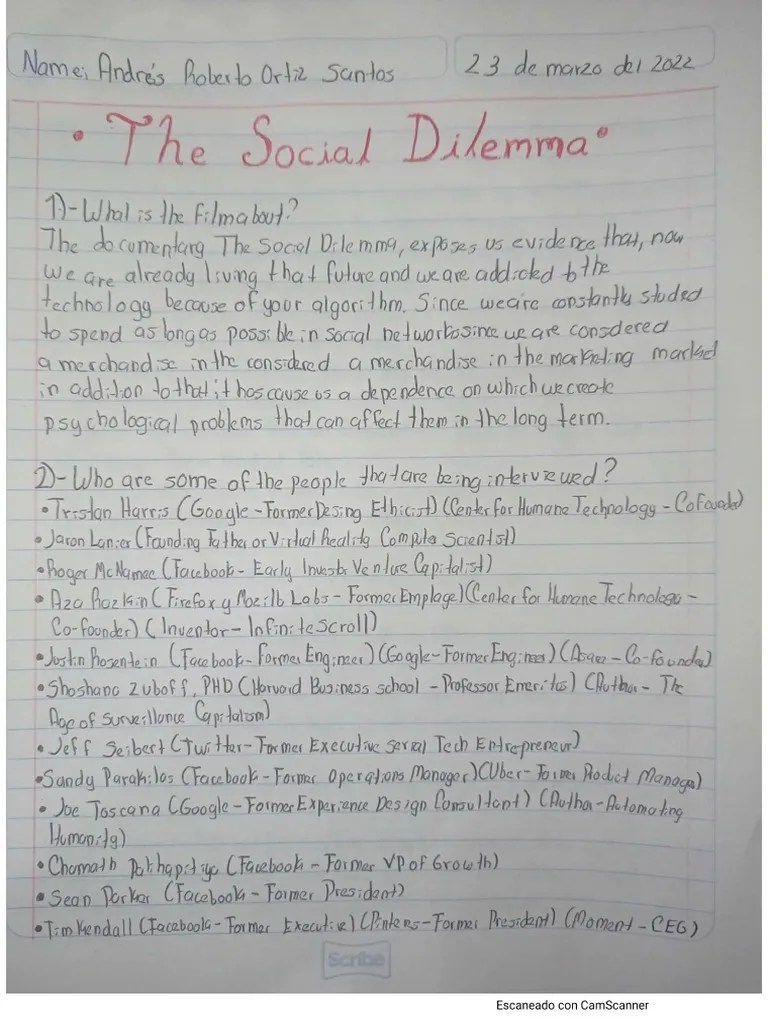 Name: Andrés Roberto Ortiz Santos
23 de marzo del 2022
• The Social Dilemma •
1)-What is the film about?
The documentary The Social Dilemma, exposes us evidence that, now
we are already living that future and we are addicted to the
technology because of your algorithm. Since we are constantly studed
to spend as long as possible in social networks since we are consdered
a merchandise in the considered a merchandise in the marketing market
in addition to that it has cause us a dependence on which we create
psychological problems that can affect them in the long term.
2)-Who are some of the people that are being interviewed?
• Tristan Harris (Google-Former Desing Ethicist) (Center for Humane Technology-Cofounder)
• Jaron Lanier (Founding Father or Virtual Reality Compute Scientist)
• Roger McNamee (Facebook-Early Investor Venture Capitalist)
• Aza Razkin (Firefox y Mozilla Labs-Former Employe) (Center for Humane Technology-
Co-founder) (Inventor-Infinite Scroll)
• Justin Rosentein (Facebook-Former Engineer) (Google-Former Engineer) (Asana-Co-founder)
• Shoshana Zuboff, PHD (Harvard Business school-Professor Emeritus) (Author-The
Age of Surveillance Capitalism)
• Jeff Seibert (Twitter-Former Executive Serial Tech Entrepreneur)
• Sandy Parakilas (Facebook-Former Operations Manager) (Uber-Former Product Manager)
• Joe Toscana (Google-Former Experience Design Consultant) (Author-Automating
Humanity)
• Chamath Palihapitiya (Facebook-Former VP of Growth)
• Sean Parker (Facebook-Former President)
• Tim Kendall (Facebook-Former Executive) (Pinteres-Former President) (Moment-CEO)
Scribe
Escaneado con CamScanner